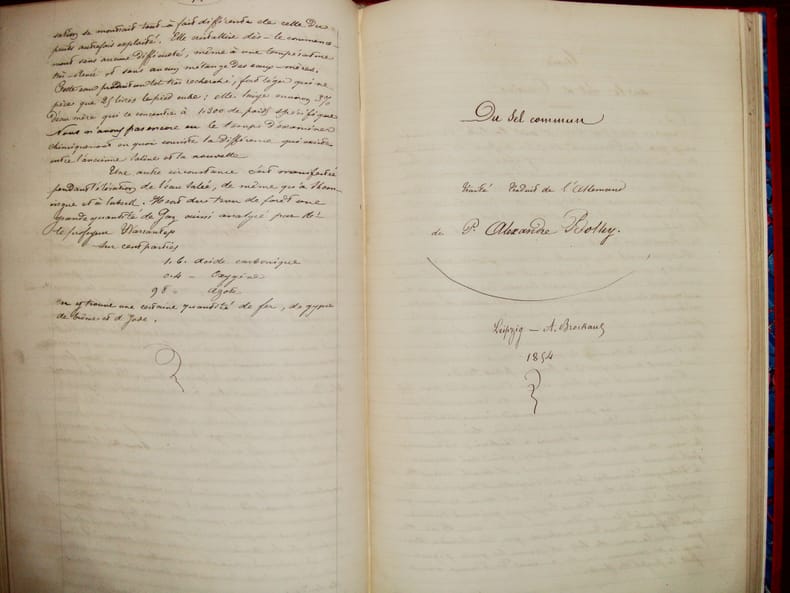 sation se montrait tout-à fait différente de celle du
puits autrefois exploité. Elle cristallise dès-le commence-
ment sans aucune difficulté, même à une température
très-élevée et sans aucun mélange des eaux-mères.
Cette eau produit un sel très recherché, fort léger qui ne
pèse que 25 livres le pied cube: elle laisse environ 3%
d'eau mère qui se concentre à 1:300 de poids spécifique
Nous n'avons pas encore eu le temps d'examiner
chimiquement en quoi consiste la différence qui existe
entre l'ancienne saline et la nouvelle
Une autre circonstance s'est manifestée
pendant l'élévation de l'eau salée, de même qu'à
et à Il sort du trou de foret une
grande quantité de Gaz, ainsi analysé par M.r
le professeur
Sur cent parties
1.6. acide carbonique
0.4 — Oxygène
98 — Azote
on y trouve une certaine quantité de fer, de gypse
de brôme et d'Jode.
Du Sel commun
traité traduit de l'Allemand
de P. Alexandre Bolley.
Leipzig — A. Brockaus
1854